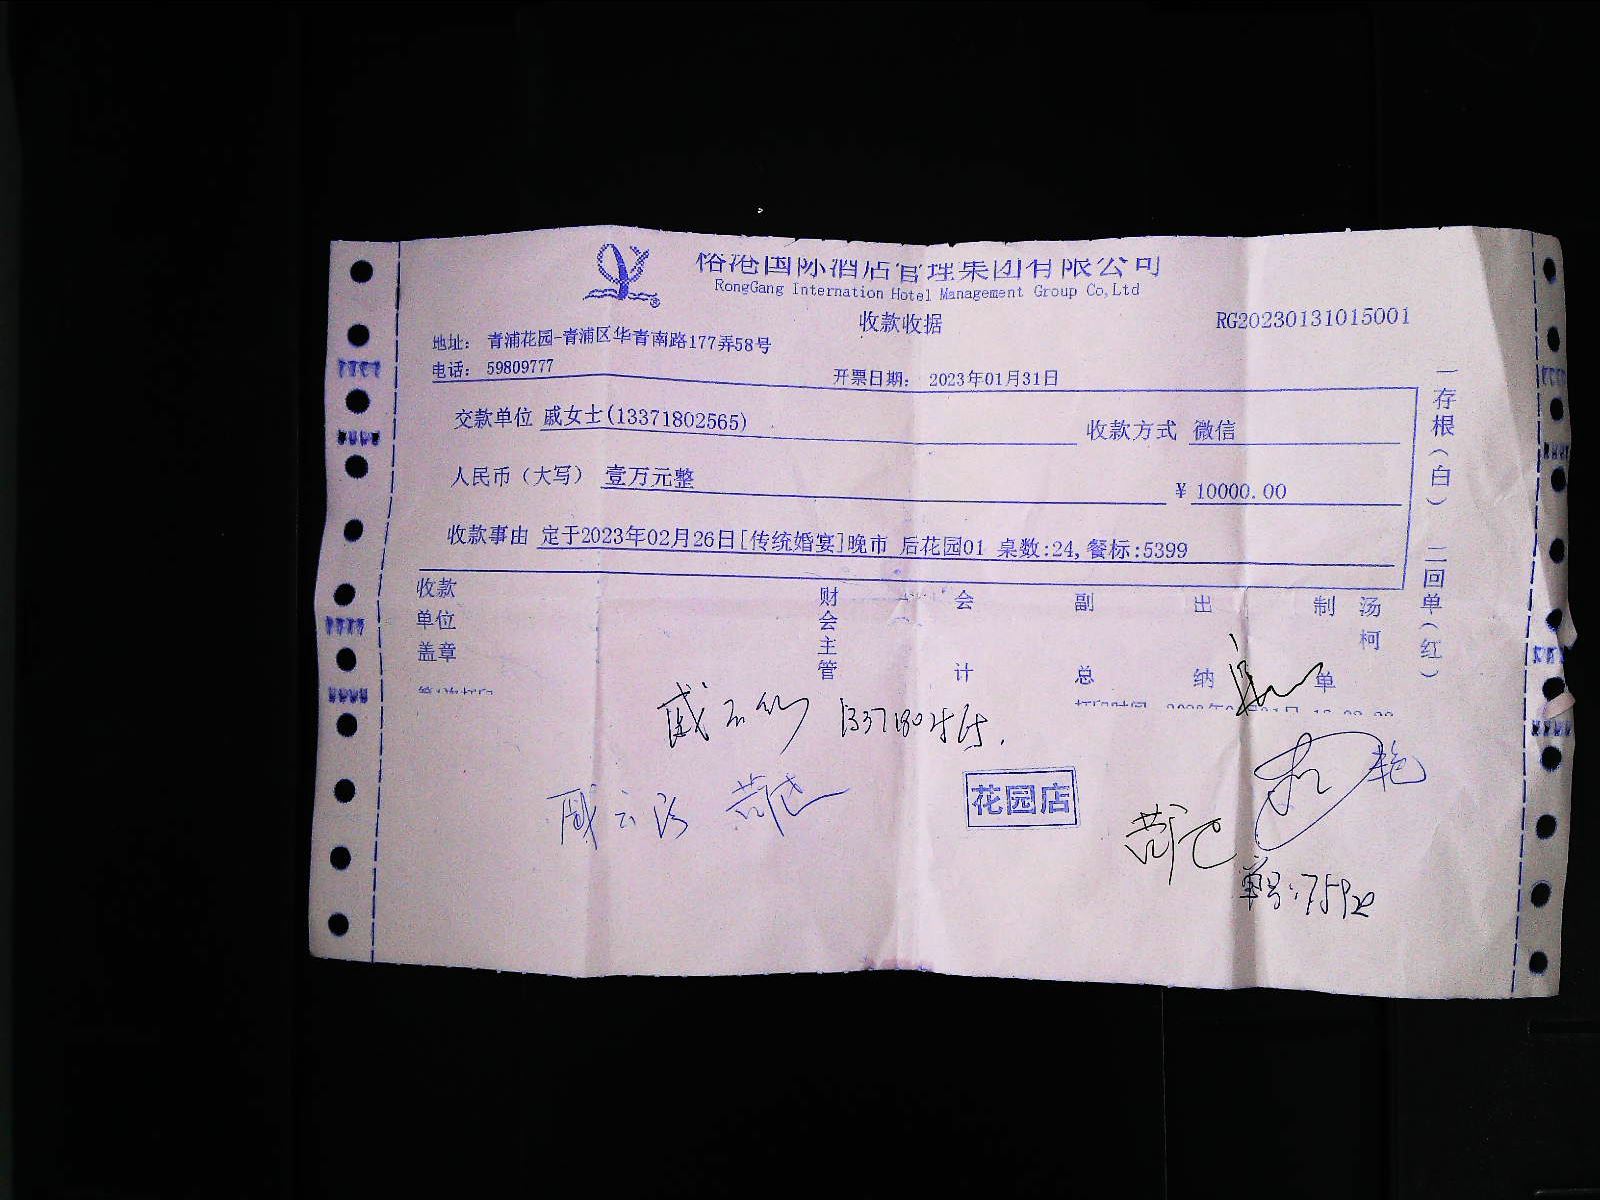 榕港国际酒店管理集团有限公司
RongGang Internation Hotel Management Group Co,Ltd
收款收据
RG20230131015001
地址： 青浦花园-青浦区华青南路177弄58号
电话： 59809777
开票日期： 2023年01月31日
交款单位 戚女士(13371802565) 收款方式 微信
人民币（大写） 壹万元整 ￥ 10000.00
收款事由 定于2023年02月26日[传统婚宴]晚市 后花园01 桌数:24,餐标:5399
一存根（白） 二回单（红）
收款单位盖章 财会主管 会计 副总 出纳 制单 汤柯
花园店
单号:7592